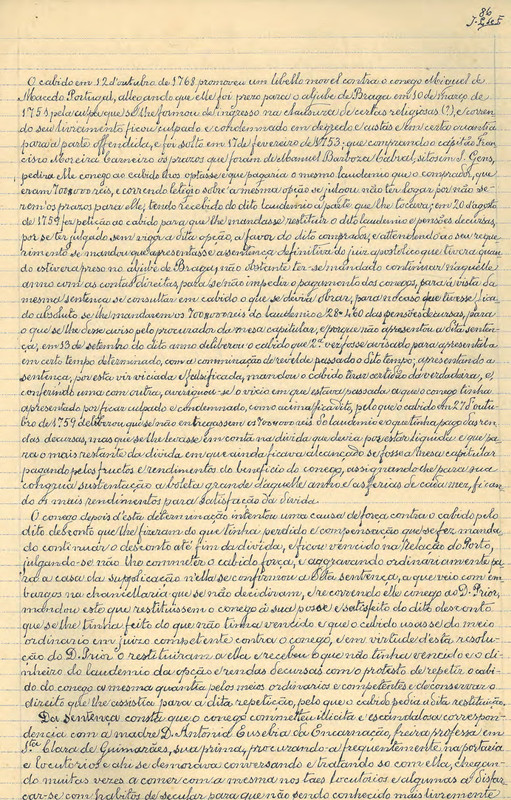 86
O cabido em 12 d'outubro de 1768 promoveu um libello movel contra o conego Miguel de
Macedo Portugal, allegando que elle foi prezo para o aljube de Braga em 10 de março de
1753 pela culpa que se lhe formou de ingresso na clausura de certas religiosas (1), e corren-
do seu livramento ficou culpado e condemnado em degredo e custas e em certa quantia
para a parte offendida, e foi solto em 17 de fevereiro de 1753: que comprando o capitão Fran-
cisco Moreira Carneiro os prazos que foram de Manuel Barboza Cabral, sitos em S. Gens,
pedira elle conego ao cabido lhos optasse e que pagaria o mesmo laudemio que o comprador, que
eram 700$000 réis, e correndo letigio sobre a mesma opção se julgou não ter logar por não se-
rem os prazos para elle, tendo recebido do dito laudemio a parte que lhe tocava; em 20 d'agosto
de 1759 fez petição ao cabido para que lhe mandasse restituir o dito laudemio e pensões decursas,
por se ter julgado sem vigor a dita opção, a favor do dito comprador, e attendendo ao seu reque-
rimento se mandou que apresentasse a sentença definitiva do juiz apostolico que tivera quan-
do estivera preso no aljube de Braga, não obstante ter-se mandado continuar n'aquelle
anno com as contas directas, para se não impedir o pagamento dos conegos, para á vista da
mesma sentença se consultar em cabido o que se devia obrar, para no caso que tivesse fica-
do absoluto se lhe mandarem os 700$000 réis do laudemio e 28$460 das pensões decursas, para
o que se lhe desse aviso pelo procurador da mesa capitular, e porque não apresentou a dita senten-
ça, em 13 de setembro do dito anno deliberou o cabido que 2.ª vez fosse avisado para apresental-a
em certo tempo determinado, com a comminação de revel de passado o dito tempo; apresentando a
sentença, por esta vir viciada e falsificada, mandou o cabido tirar certidão da verdadeira, e,
conferindo uma com outra, averiguou-se o vicio em que estava passada a que o conego tinha
apresentado por ficar culpado e condemnado, como acima fica dito, pelo que o cabido em 27 d'outu-
bro de 1759 deliberou que se não entregassem os 700$000 réis do laudemio e o que tinha pago das ren-
das decursas, mas que se lhe levasse em conta na divida que devia por estar liquida e que pa-
ra o mais restante da divida em que ainda ficava alcançado se fosse a mesa capitular
pagando pelos fructos e rendimentos do beneficio do conego, assignando-lhe para sua
congrua sustentação a boleta grande d'aquelle anno e as ferias de cada mez, fican-
do os mais rendimentos para satisfação da divida.
O conego depois d'esta determinação intentou uma causa de força contra o cabido pelo
dito desconto que lhe fizeram do que tinha perdido e compensação que se fez, manda-
do continuar o desconto até fim da divida, e ficou vencido na Relação do Porto,
julgando-se não lhe commeter o cabido força, e aggravando ordinariamente pa-
ra a casa da supplicação n'ella se confirmou a dita sentença, a que veio com em-
bargos na chancellaria que se não decidiram, e recorrendo elle conego ao D. Prior,
mandou este que restituissem o conego à sua posse e satisfeito do dito desconto
que se lhe tinha feito do que não tinha vencido e que o cabido usasse do meio
ordinario em juizo competente contra o conego, e em virtude d'esta resolu-
ção do D. Prior o restituiram a ella e recebeu o que não tinha vencido e o di-
nheiro do laudemio da opção e rendas decursas com o protesto de repetir o cabi-
do do conego a mesma quantia pelos meios ordinarios e competentes e de conservar o
direito que lhe assistia para a dita repetição, pelo que o cabido pedia a dita restituição.
Da sentença consta que o conego commetteu illicita e escandalosa correspon-
dencia com a madre D. Antonia Eusebia da Encarnação, freira professa em
S.ta Clara de Guimarães, sua prima, procurando-a frequentemente na portaria
e locutorios e ahi se demorava conversando e tratando só com ella, chegan-
do muitas vezes a comer com a mesma nos taes locutorios e algumas a disfar-
çar-se com habitos de secular para que não sendo conhecido mais livremente